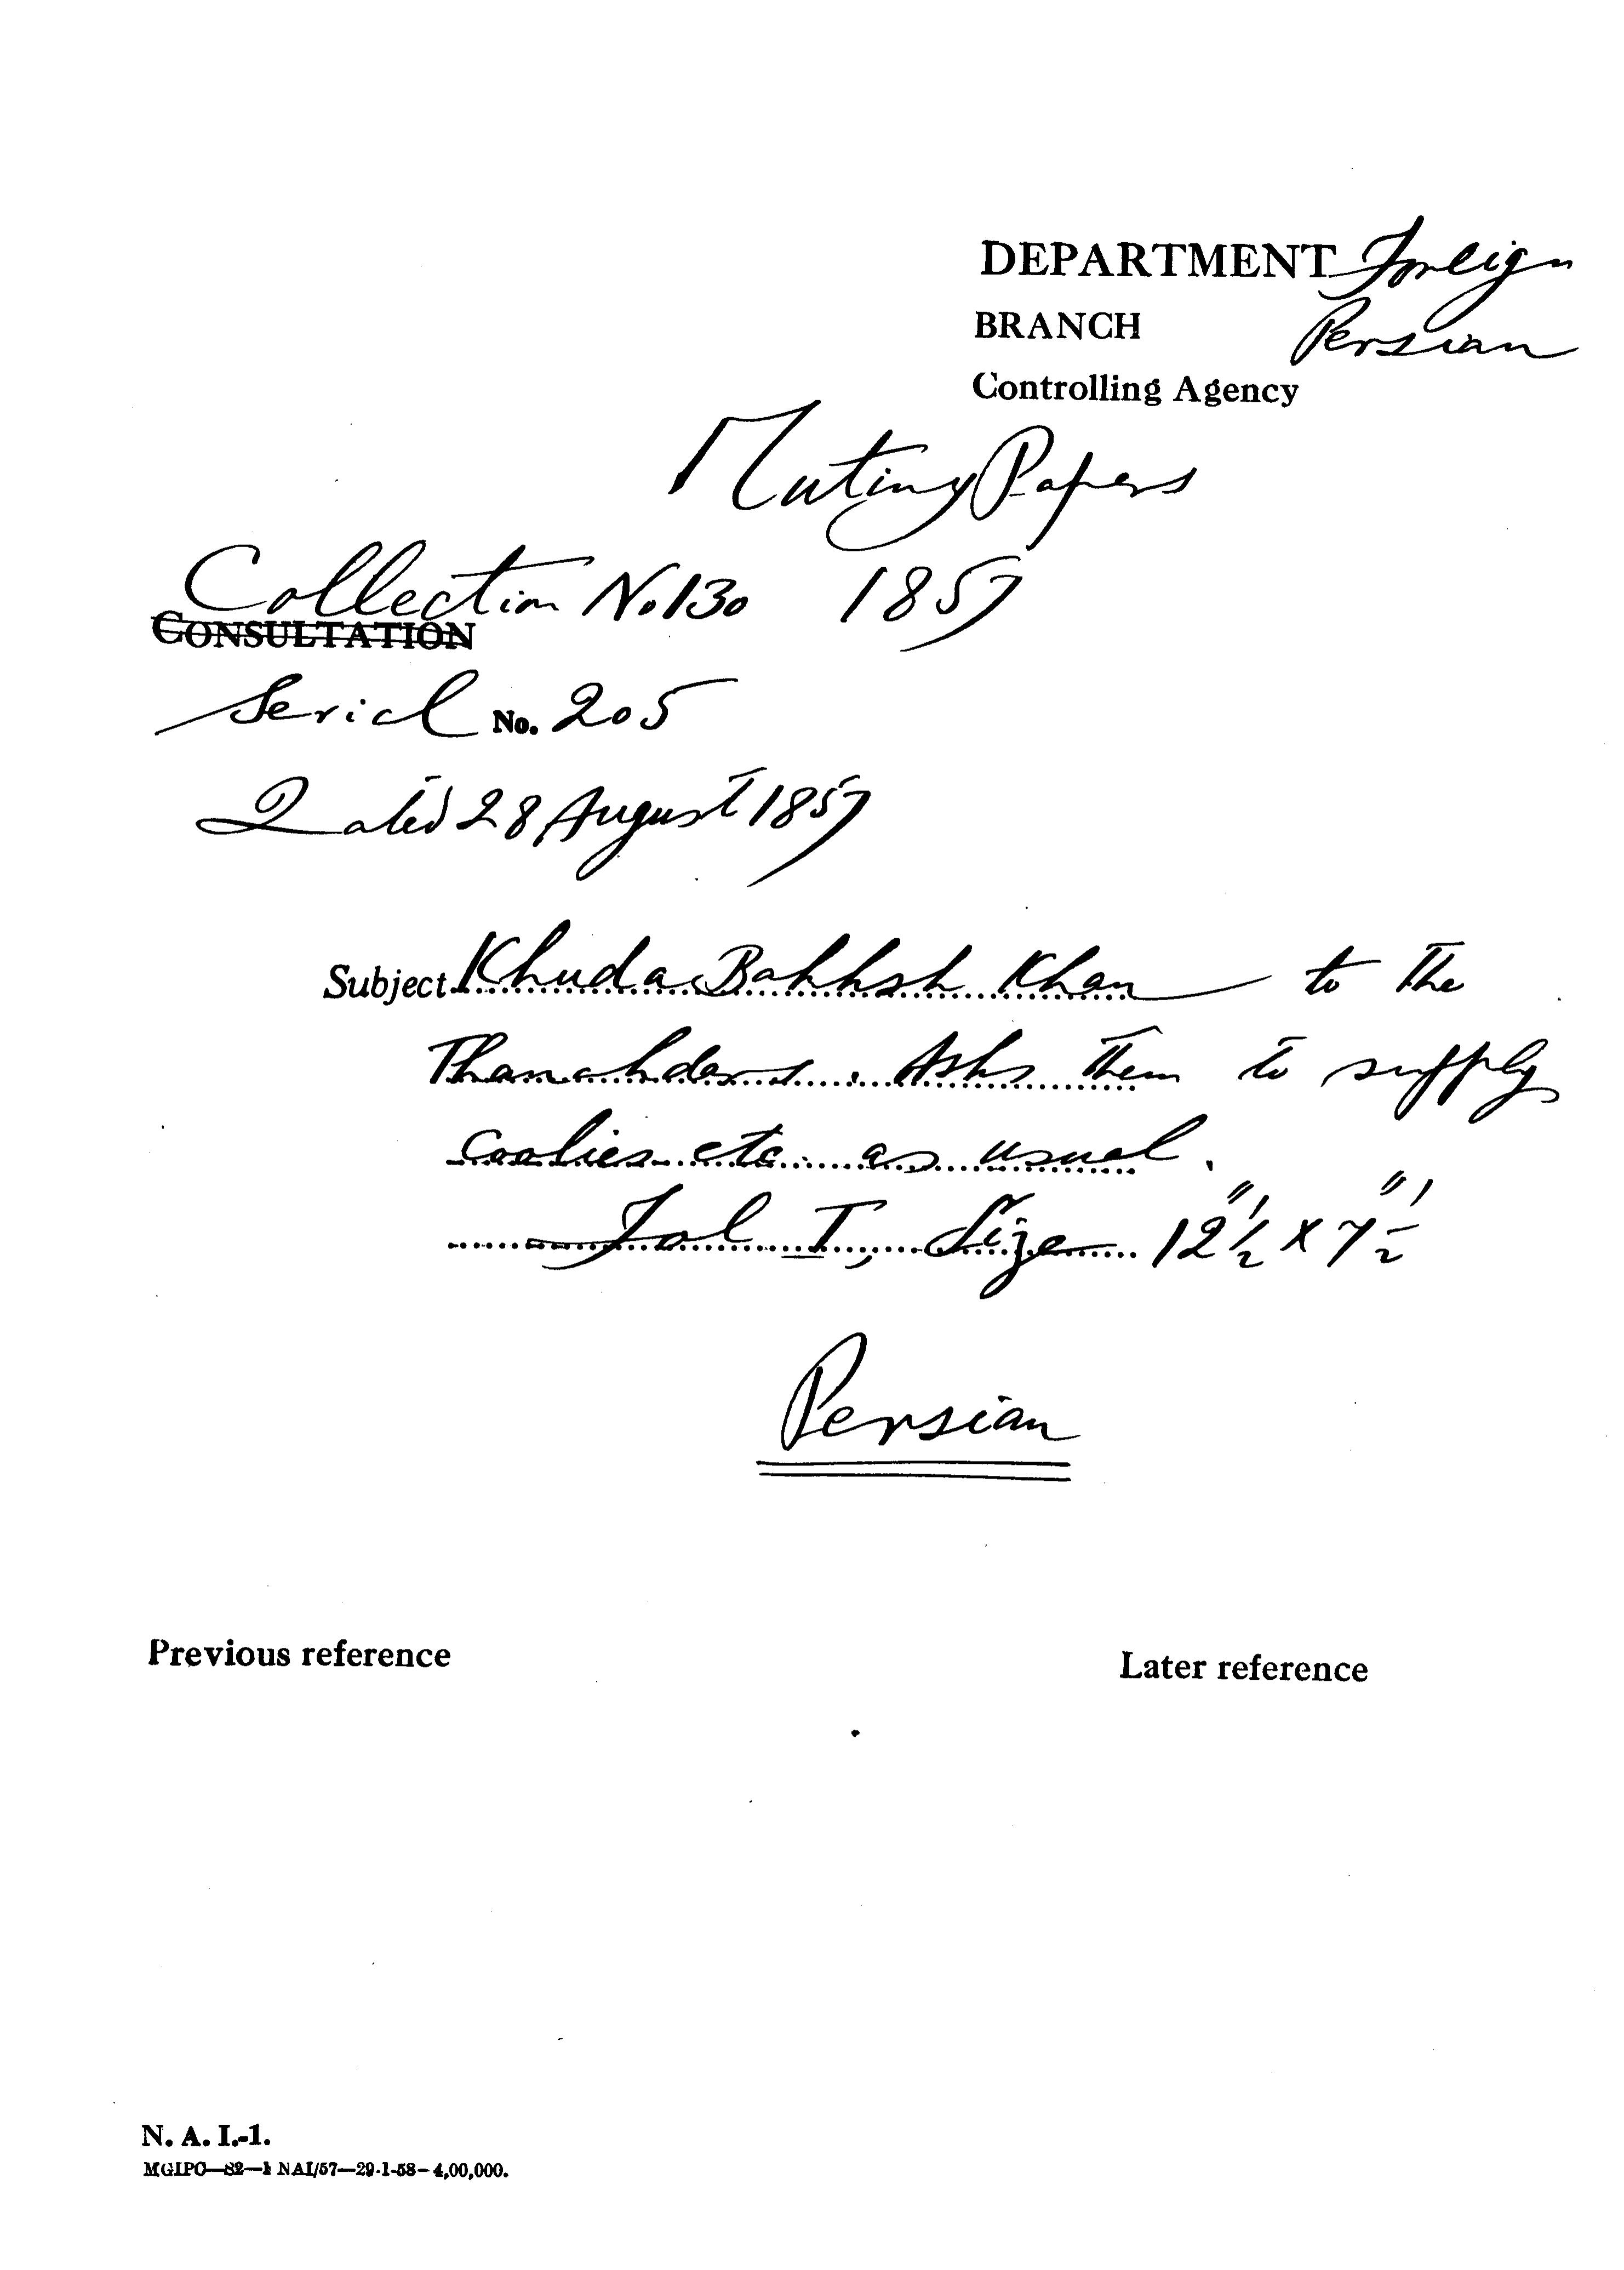 DEPARTMENT Foreign
BRANCH Persian
Controlling Agency
Mutiny Papers
Collection No 130 1857
CONSULTATION
Serial No. 205
Dated 28 August 1857
Subject Khuda Bakhsh Khan to the
Thanahdars. Asks them to supply
coolies etc. as usual.
Fol I, Size 12½" x 7½"
Persian
Previous reference
Later reference
N. A. I.-1.
MGIPC—S2—1 NAI/57—29-1-58—4,00,000.